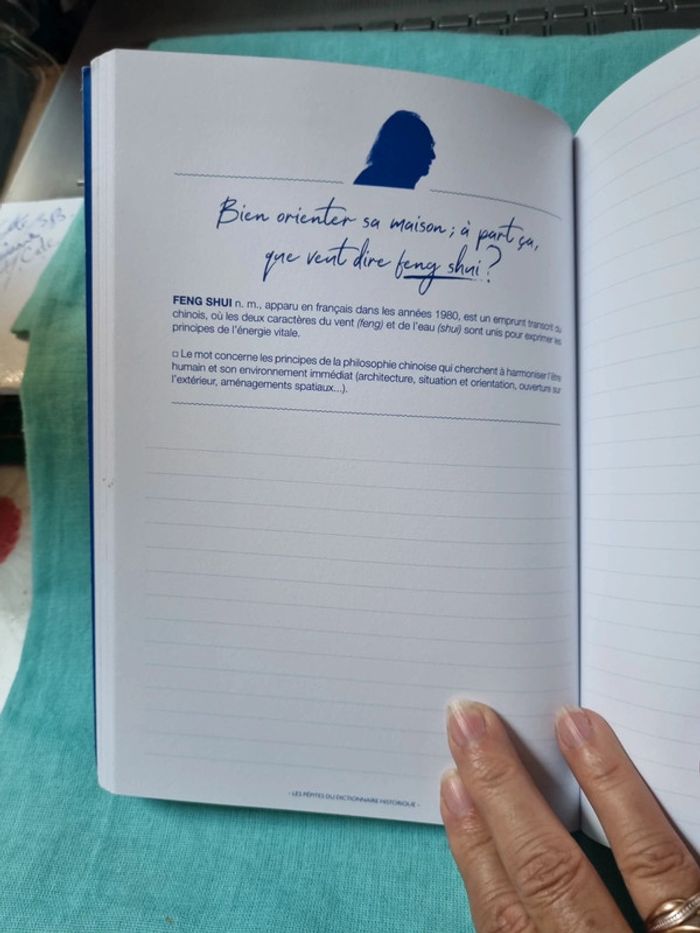 Bien orienter sa maison ; à part ça,
que veut dire feng shui ?
FENG SHUI n. m., apparu en français dans les années 1980, est un emprunt transcrit du
chinois, où les deux caractères du vent (feng) et de l'eau (shui) sont unis pour exprimer les
principes de l'énergie vitale.
□ Le mot concerne les principes de la philosophie chinoise qui cherchent à harmoniser l'être
humain et son environnement immédiat (architecture, situation et orientation, ouverture sur
l'extérieur, aménagements spatiaux...).
- LES PÉPITES DU DICTIONNAIRE HISTORIQUE -